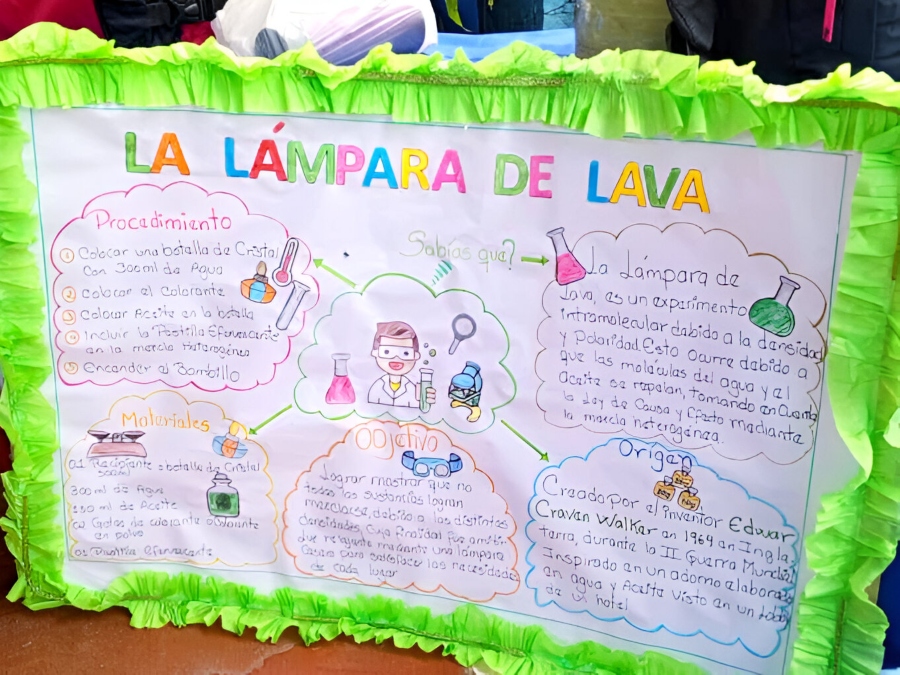 LA LÁMPARA DE LAVA
Procedimiento
1 Colocar una botella de Cristal
Con 300ml de Agua
2 colocar el Colorante
3 Colocar Aceite en la botella
4 Incluir la Pastilla Efervescente
en la mezcla Heterogénea
5 Encender el Bombillo
Sabías que?
La Lámpara de
Lava, es un experimento
intramolecular debido a la densidad
y Polaridad. Esto Ocurre debido a
que las moléculas del agua y el
Aceite se repelan, tomando en Cuenta
la Ley de Causa y Efecto mediante
la mezcla heterogénea.
Materiales
01 Recipiente o botella de Cristal
300ml
300 ml de Agua
ml de Aceite
Gotas de colorante o Colorante
en polvo
01 Pastilla Efervescente
Objetivo
Lograr mostrar que no
todas las sustancias logran
mezclarse, debido a las distintas
densidades, Cuya finalidad fue
que relajante mediante una lámpara
Casera para satisfacer las necesidades
de cada lugar
Origen
Creada por el inventor Edwar
Craven Walker en 1964 en Ingla
terra, durante la II Guerra Mundial
Inspirado en un adorno elaborado
en agua y Aceite visto en un
de un hotel